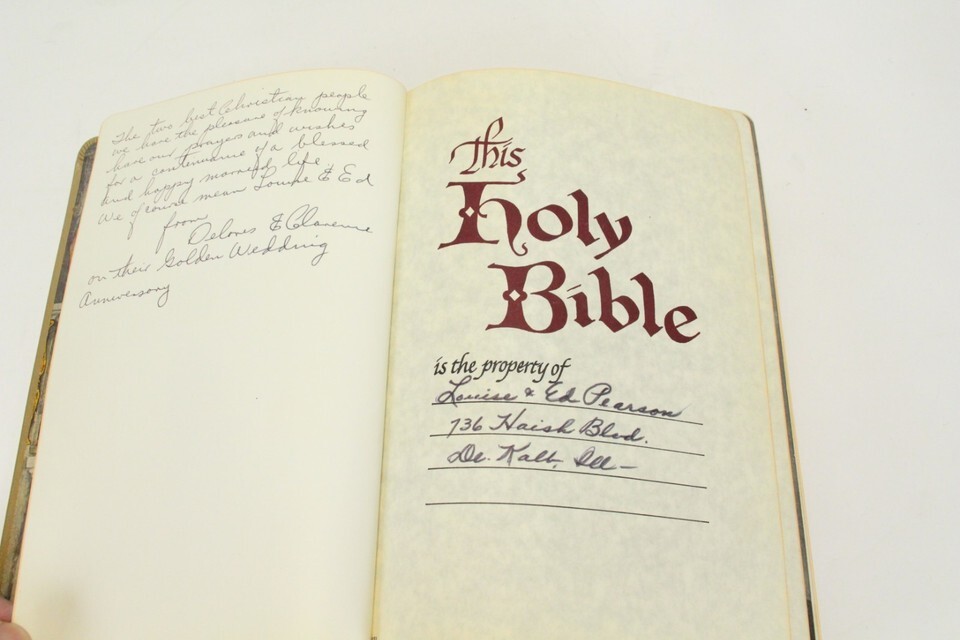 The two best Christian people
we have the pleasure of knowing
have our prayers and wishes
for a contenuance of a blessed
and happy married life.
We of course mean Louise & Ed
from
Delores & Clarence
on their Golden Wedding
Anniversory
This
Holy
Bible
is the property of
Louise & Ed Pearson
736 Haish Blvd.
De Kalb, Ill -